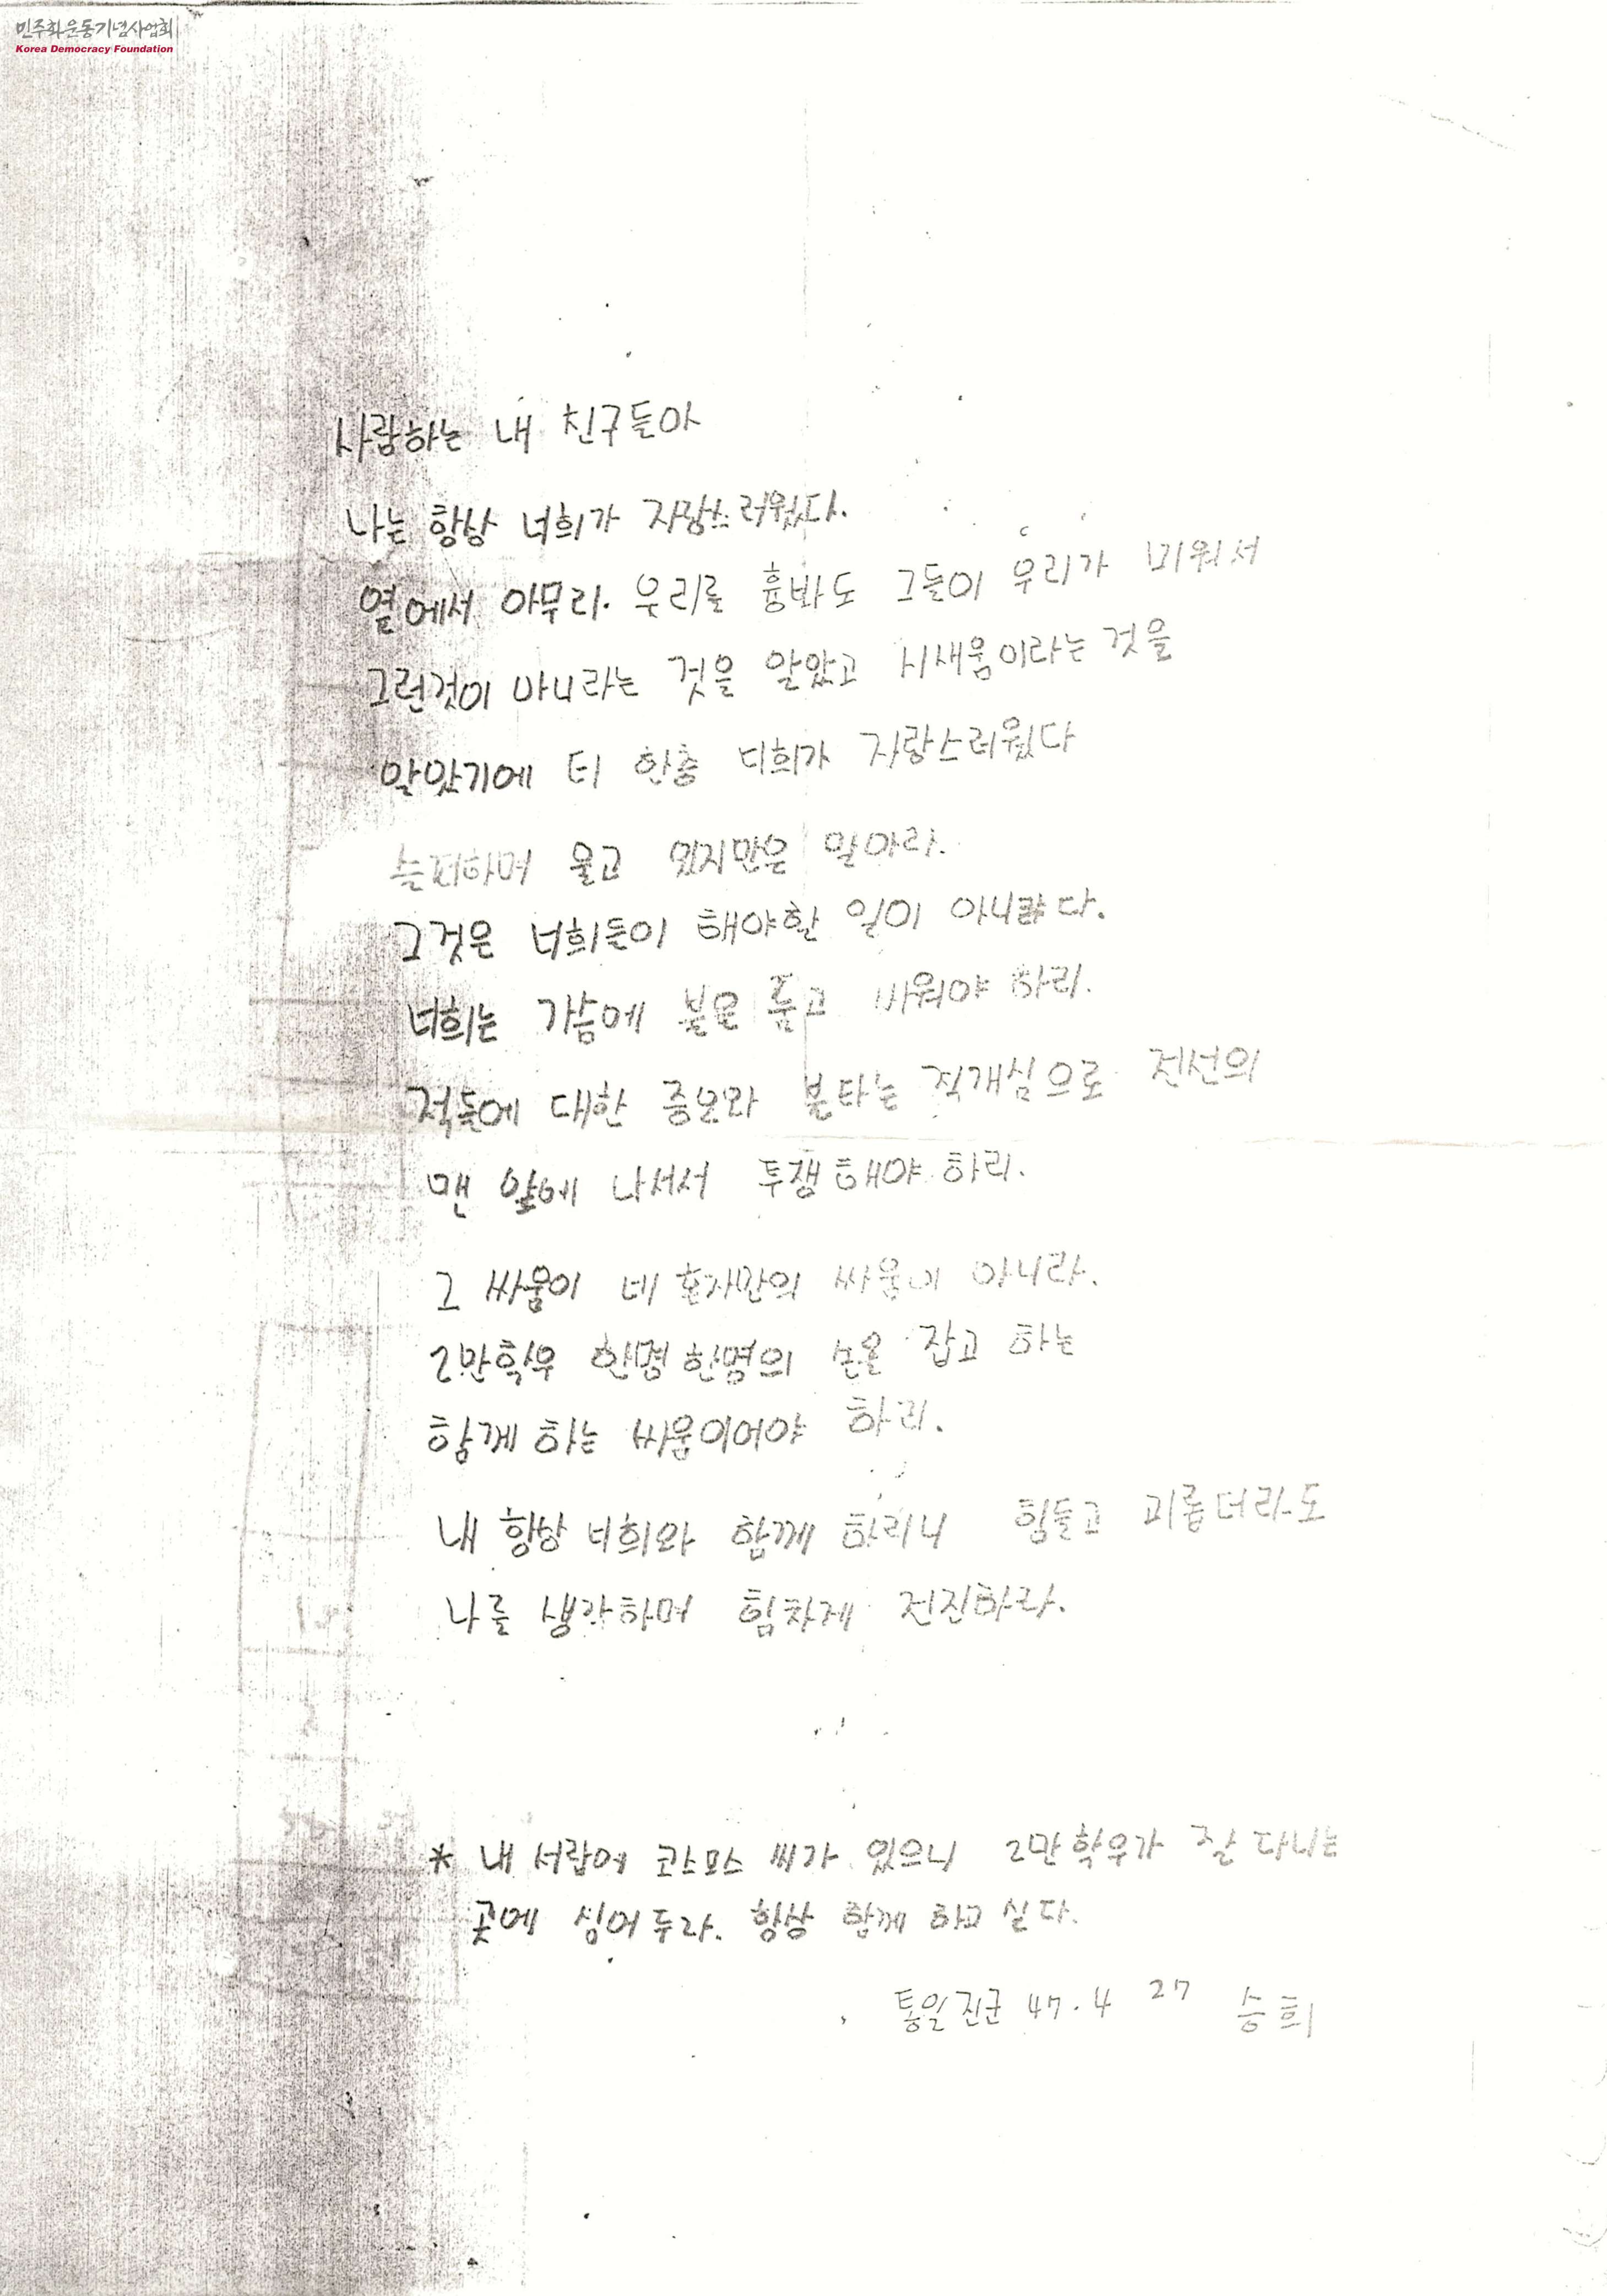 민주화운동기념사업회
Korea Democracy Foundation
사랑하는 내 친구들아
나는 항상 너희가 자랑스러웠다.
옆에서 아무리 우리를 흉봐도 그들이 우리가 미워서
그런것이 아니라는 것을 알았고 시새움이라는 것을
알았기에 더 한층 너희가 자랑스러웠다
슬퍼하며 울고 있지만은 말아라.
그것은 너희들이 해야할 일이 아니란다.
너희는 가슴에 불을 품고 싸워야 하리.
적들에 대한 증오와 불타는 적개심으로 전선의
맨 앞에 나서서 투쟁해야 하리.
그 싸움이 네 혼자만의 싸움이 아니라.
2만학우 한명 한명의 손을 잡고 하는
함께 하는 싸움이어야 하리.
내 항상 너희와 함께 하리니 힘들고 괴롭더라도
나를 생각하며 힘차게 전진하라.
* 내 서랍에 코스모스 씨가 있으니 2만학우가 잘 다니는
곳에 심어 두라. 항상 함께 하고 싶다.
통일진군 47. 4 27 승희